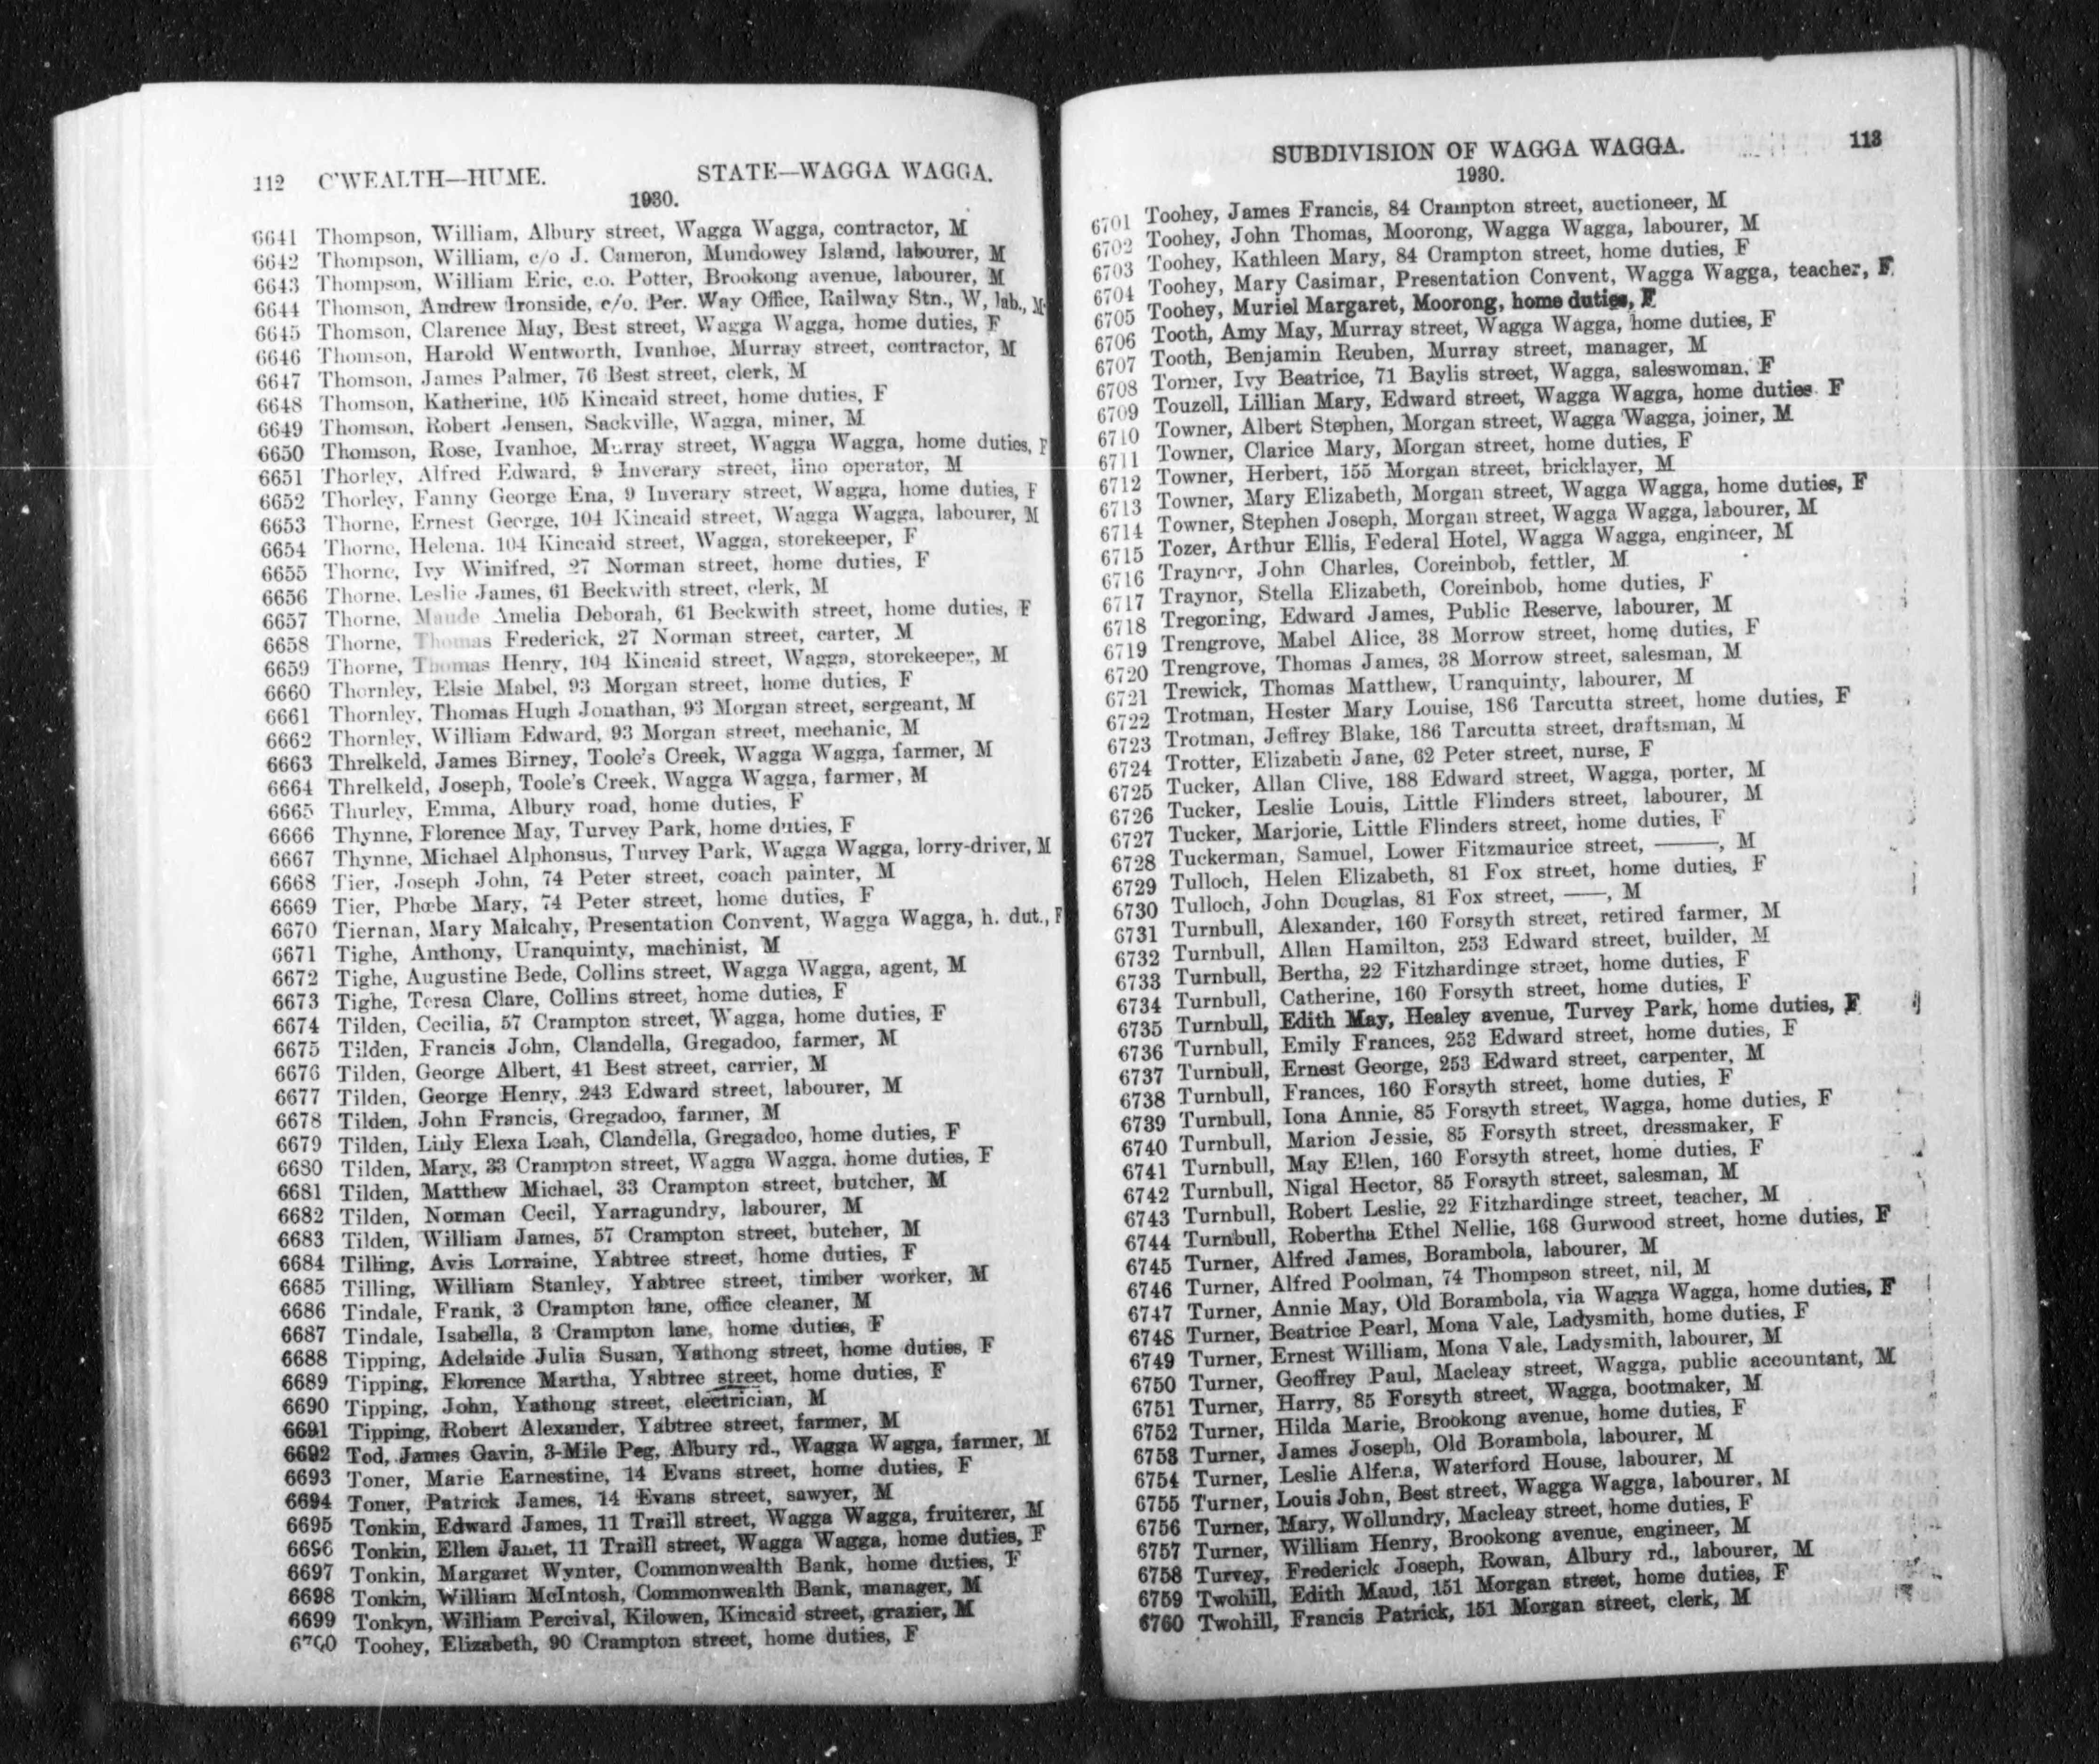 112 C'WEALTH—HUME. STATE—WAGGA WAGGA.
1930.
6641 Thompson, William, Albury street, Wagga Wagga, contractor, M
6642 Thompson, William, c/o J. Cameron, Mundowey Island, labourer, M
6643 Thompson, William Eric, c.o. Potter, Brookong avenue, labourer, M
6644 Thomson, Andrew Ironside, c/o. Per. Way Office, Railway Stn., W, lab., M
6645 Thomson, Clarence May, Best street, Wagga Wagga, home duties, F
6646 Thomson, Harold Wentworth, Ivanhoe, Murray street, contractor, M
6647 Thomson, James Palmer, 76 Best street, clerk, M
6648 Thomson, Katherine, 105 Kincaid street, home duties, F
6649 Thomson, Robert Jensen, Sackville, Wagga, miner, M
6650 Thomson, Rose, Ivanhoe, Murray street, Wagga Wagga, home duties, F
6651 Thorley, Alfred Edward, 9 Inverary street, lino operator, M
6652 Thorley, Fanny George Ena, 9 Inverary street, Wagga, home duties, F
6653 Thorne, Ernest George, 104 Kincaid street, Wagga Wagga, labourer, M
6654 Thorne, Helena. 104 Kincaid street, Wagga, storekeeper, F
6655 Thorne, Ivy Winifred, 27 Norman street, home duties, F
6656 Thorne, Leslie James, 61 Beckwith street, clerk, M
6657 Thorne, Maude Amelia Deborah, 61 Beckwith street, home duties, F
6658 Thorne, Thomas Frederick, 27 Norman street, carter, M
6659 Thorne, Thomas Henry, 104 Kincaid street, Wagga, storekeeper, M
6660 Thornley, Elsie Mabel, 93 Morgan street, home duties, F
6661 Thornley, Thomas Hugh Jonathan, 93 Morgan street, sergeant, M
6662 Thornley, William Edward, 93 Morgan street, mechanic, M
6663 Threlkeld, James Birney, Toole's Creek, Wagga Wagga, farmer, M
6664 Threlkeld, Joseph, Toole's Creek, Wagga Wagga, farmer, M
6665 Thurley, Emma, Albury road, home duties, F
6666 Thynne, Florence May, Turvey Park, home duties, F
6667 Thynne, Michael Alphonsus, Turvey Park, Wagga Wagga, lorry-driver, M
6668 Tier, Joseph John, 74 Peter street, coach painter, M
6669 Tier, Phœbe Mary, 74 Peter street, home duties, F
6670 Tiernan, Mary Malcahy, Presentation Convent, Wagga Wagga, h. dut., F
6671 Tighe, Anthony, Uranquinty, machinist, M
6672 Tighe, Augustine Bede, Collins street, Wagga Wagga, agent, M
6673 Tighe, Teresa Clare, Collins street, home duties, F
6674 Tilden, Cecilia, 57 Crampton street, Wagga, home duties, F
6675 Tilden, Francis John, Clandella, Gregadoo, farmer, M
6676 Tilden, George Albert, 41 Best street, carrier, M
6677 Tilden, George Henry, 243 Edward street, labourer, M
6678 Tilden, John Francis, Gregadoo, farmer, M
6679 Tilden, Lily Elexa Leah, Clandella, Gregadoo, home duties, F
6680 Tilden, Mary, 33 Crampton street, Wagga Wagga. home duties, F
6681 Tilden, Matthew Michael, 33 Crampton street, butcher, M
6682 Tilden, Norman Cecil, Yarragundry, labourer, M
6683 Tilden, William James, 57 Crampton street, butcher, M
6684 Tilling, Avis Lorraine, Yabtree street, home duties, F
6685 Tilling, William Stanley, Yabtree street, timber worker, M
6686 Tindale, Frank, 3 Crampton lane, office cleaner, M
6687 Tindale, Isabella, 3 Crampton lane, home duties, F
6688 Tipping, Adelaide Julia Susan, Yathong street, home duties, F
6689 Tipping, Florence Martha, Yabtree street, home duties, F
6690 Tipping, John, Yathong street, electrician, M
6691 Tipping, Robert Alexander, Yabtree street, farmer, M
6692 Tod, James Gavin, 3-Mile Peg, Albury rd., Wagga Wagga, farmer, M
6693 Toner, Marie Earnestine, 14 Evans street, home duties, F
6694 Toner, Patrick James, 14 Evans street, sawyer, M
6695 Tonkin, Edward James, 11 Traill street, Wagga Wagga, fruiterer, M
6696 Tonkin, Ellen Janet, 11 Traill street, Wagga Wagga, home duties, F
6697 Tonkin, Margaret Wynter, Commonwealth Bank, home duties, F
6698 Tonkin, William McIntosh, Commonwealth Bank, manager, M
6699 Tonkyn, William Percival, Kilowen, Kincaid street, grazier, M
6700 Toohey, Elizabeth, 90 Crampton street, home duties, F
SUBDIVISION OF WAGGA WAGGA. 113
1930.
6701 Toohey, James Francis, 84 Crampton street, auctioneer, M
6702 Toohey, John Thomas, Moorong, Wagga Wagga, labourer, M
6703 Toohey, Kathleen Mary, 84 Crampton street, home duties, F
6704 Toohey, Mary Casimar, Presentation Convent, Wagga Wagga, teacher, F.
6705 Toohey, Muriel Margaret, Moorong, home duties, F
6706 Tooth, Amy May, Murray street, Wagga Wagga, home duties, F
6707 Tooth, Benjamin Reuben, Murray street, manager, M
6708 Torner, Ivy Beatrice, 71 Baylis street, Wagga, saleswoman, F
6709 Touzell, Lillian Mary, Edward street, Wagga Wagga, home duties. F
6710 Towner, Albert Stephen, Morgan street, Wagga Wagga, joiner, M
6711 Towner, Clarice Mary, Morgan street, home duties, F
6712 Towner, Herbert, 155 Morgan street, bricklayer, M
6713 Towner, Mary Elizabeth, Morgan street, Wagga Wagga, home duties, F
6714 Towner, Stephen Joseph, Morgan street, Wagga Wagga, labourer, M
6715 Tozer, Arthur Ellis, Federal Hotel, Wagga Wagga, engineer, M
6716 Traynor, John Charles, Coreinbob, fettler, M
6717 Traynor, Stella Elizabeth, Coreinbob, home duties, F
6718 Tregoning, Edward James, Public Reserve, labourer, M
6719 Trengrove, Mabel Alice, 38 Morrow street, home duties, F
6720 Trengrove, Thomas James, 38 Morrow street, salesman, M
6721 Trewick, Thomas Matthew, Uranquinty, labourer, M
6722 Trotman, Hester Mary Louise, 186 Tarcutta street, home duties, F
6723 Trotman, Jeffrey Blake, 186 Tarcutta street, draftsman, M
6724 Trotter, Elizabeth Jane, 62 Peter street, nurse, F
6725 Tucker, Allan Clive, 188 Edward street, Wagga, porter, M
6726 Tucker, Leslie Louis, Little Flinders street, labourer, M
6727 Tucker, Marjorie, Little Flinders street, home duties, F
6728 Tuckerman, Samuel, Lower Fitzmaurice street, ———, M
6729 Tulloch, Helen Elizabeth, 81 Fox street, home duties, F
6730 Tulloch, John Douglas, 81 Fox street, ——, M
6731 Turnbull, Alexander, 160 Forsyth street, retired farmer, M
6732 Turnbull, Allan Hamilton, 253 Edward street, builder, M
6733 Turnbull, Bertha, 22 Fitzhardinge street, home duties, F
6734 Turnbull, Catherine, 160 Forsyth street, home duties, F
6735 Turnbull, Edith May, Healey avenue, Turvey Park, home duties, F
6736 Turnbull, Emily Frances, 253 Edward street, home duties, F
6737 Turnbull, Ernest George, 253 Edward street, carpenter, M
6738 Turnbull, Frances, 160 Forsyth street, home duties, F
6739 Turnbull, Iona Annie, 85 Forsyth street, Wagga, home duties, F
6740 Turnbull, Marion Jessie, 85 Forsyth street, dressmaker, F
6741 Turnbull, May Ellen, 160 Forsyth street, home duties, F
6742 Turnbull, Nigal Hector, 85 Forsyth street, salesman, M
6743 Turnbull, Robert Leslie, 22 Fitzhardinge street, teacher, M
6744 Turnbull, Robertha Ethel Nellie, 168 Gurwood street, home duties, F
6745 Turner, Alfred James, Borambola, labourer, M
6746 Turner, Alfred Poolman, 74 Thompson street, nil, M
6747 Turner, Annie May, Old Borambola, via Wagga Wagga, home duties, F
6748 Turner, Beatrice Pearl, Mona Vale, Ladysmith, home duties, F
6749 Turner, Ernest William, Mona Vale, Ladysmith, labourer, M
6750 Turner, Geoffrey Paul, Macleay street, Wagga, public accountant, M
6751 Turner, Harry, 85 Forsyth street, Wagga, bootmaker, M
6752 Turner, Hilda Marie, Brookong avenue, home duties, F
6753 Turner, James Joseph, Old Borambola, labourer, M
6754 Turner, Leslie Alfena, Waterford House, labourer, M
6755 Turner, Louis John, Best street, Wagga Wagga, labourer, M
6756 Turner, Mary, Wollundry, Macleay street, home duties, F
6757 Turner, William Henry, Brookong avenue, engineer, M
6758 Turvey, Frederick Joseph, Rowan, Albury rd., labourer, M
6759 Twohill, Edith Maud, 151 Morgan street, home duties, F
6760 Twohill, Francis Patrick, 151 Morgan street, clerk, M